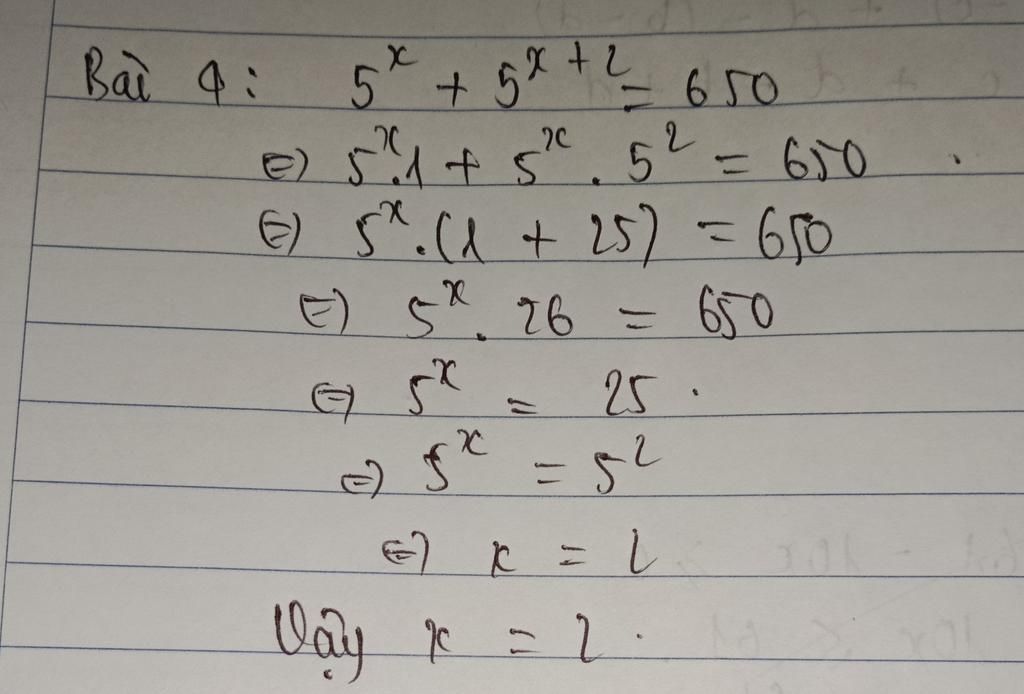 Bài 4: 5^x + 5^{x+2} = 650
⇔ 5^x.1 + 5^x . 5^2 = 650
⇔ 5^x.(1 + 25) = 650
⇔ 5^x . 26 = 650
⇔ 5^x = 25.
⇔ 5^x = 5^2
⇔ x = 2
Vậy x = 2.